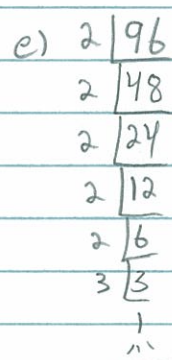 e) 2 96
2 48
2 24
2 12
2 6
3 3
1